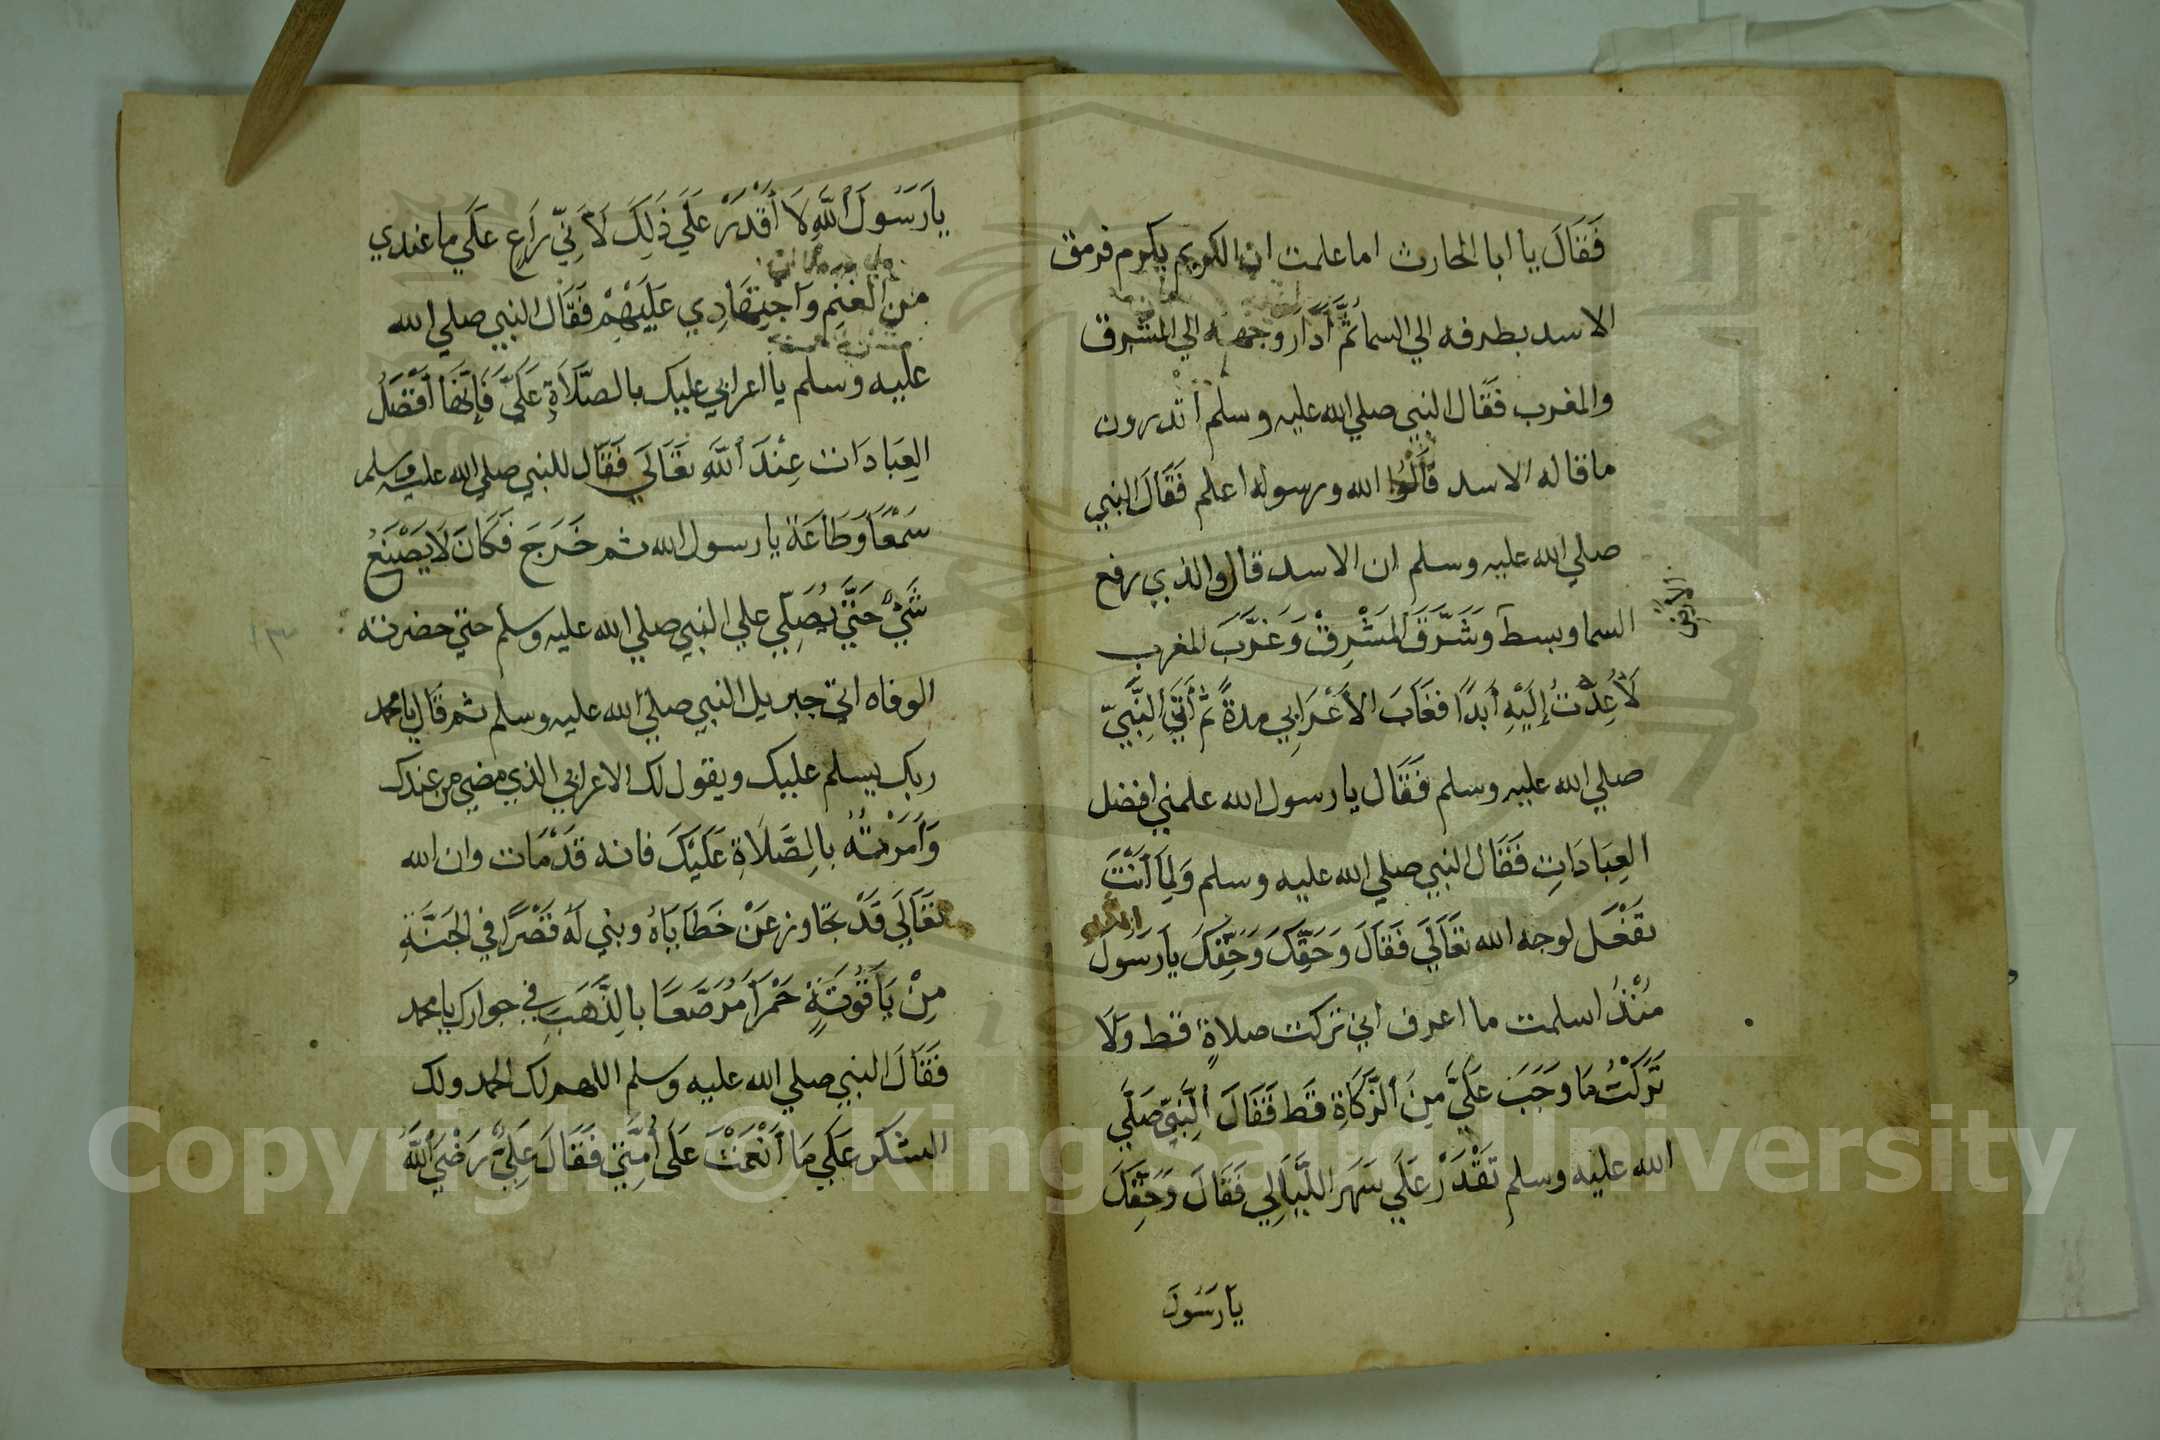 فَقَالَ يا ابا الحارث اما علمت ان الكريم يكرم فرمق
الاسد بطرفه الي السما ثُمَّ أَدَارَ وجهه الي المشرق
والمغرب فَقَال النبي صلي الله عليه وسلم أتدرون
ما قاله الاسد قَالُوا الله ورسوله اعلم فَقَالَ النبي
صلي الله عليه وسلم ان الاسد قال والذي رفع
السما وبسط وَشَرَّقَ المَشْرِقْ وَغَرَّبَ المغرب
الارض
لَا عُدْتُ إِلَيْهِ أَبَدًا فغَابَ الأَعْرَابِي مدةً ثم أَتَي النَّبِيّ
صلي الله عليه وسلم فَقَال يا رسول الله علمني افضل
العِبَادَاتِ فَقَال النبي صلي الله عليه وسلم وَلِمَا أَنْتَ
تَفْعَل لوجه الله تَعَالَي فَقَالَ وَحَقِّكَ وَحَقِّكَ يَا رَسُولَ
الله
مُنْذُ اسلمت ما اعرف اني تركت صلاةٍ قط وَلَا
تَرَكْتُ مَا وَجَبَ عَلَيَّ مِنَ الزَّكَاةِ قَط فَقَالَ النَّبِيّ صَلَّي
الله عليه وسلم تَقْدَرْ عَلَي سَهَر اللَّيَالِي فَقَالَ وَحَقِّكَ
يَا رَسُولَ
يَا رَسُولَ اللَّهِ لَا أَقْدَرْ عَلَي ذَلِكَ لَأَنِّي رَاعٍ عَلَي ما عندي
من الغَنَمِ وَاجْتِهَادِي عَلَيْهِمْ فَقَال النبي صلي الله
عليه وسلم يا اعرابي عليك بالصَّلَاةِ عَلَيَّ فَإِنَّهَا أَفْضَلُ
العِبَادَات عِنْدَ اللَّهِ تَعَالَي فَقَال للنبي صلي الله عليه وسلم
سَمْعًا وَطَاعَة يا رسول الله ثم خَرَجَ فَكَانَ لَا يَصْنَعُ
شَيْ حَتَّي يُصَلِّي علي النبي صلي الله عليه وسلم حتي حضرته
الوفاه اتي جبريل النبي صلي الله عليه وسلم ثم قَال يا محمد
ربك يسلم عليك ويقول لك الاعرابي الذي مضي من عندك
وَأَمَرْتَهُ بالصَّلَاةِ عَلَيْكَ فانه قَدْ مَات وان الله
تَعَالَي قَدْ تجاوز عَنْ خَطَايَاهُ وبني لَهُ قَصْرًا فِي الجَنَّةِ
مِنْ يَاقُوتَةٍ حَمْرَا مُرَصَّعًا بالذَّهَبِ في جوارك يا محمد
فَقَالَ النبي صلي الله عليه وسلم اللهم لك الحمد ولك
الشكر عَلَي مَا أَنْعَمْتَ عَلَى أُمَّتِي فَقَالَ عَلِيٌّ رَضْيَ اللَّهُ
Copyright © King Saud University